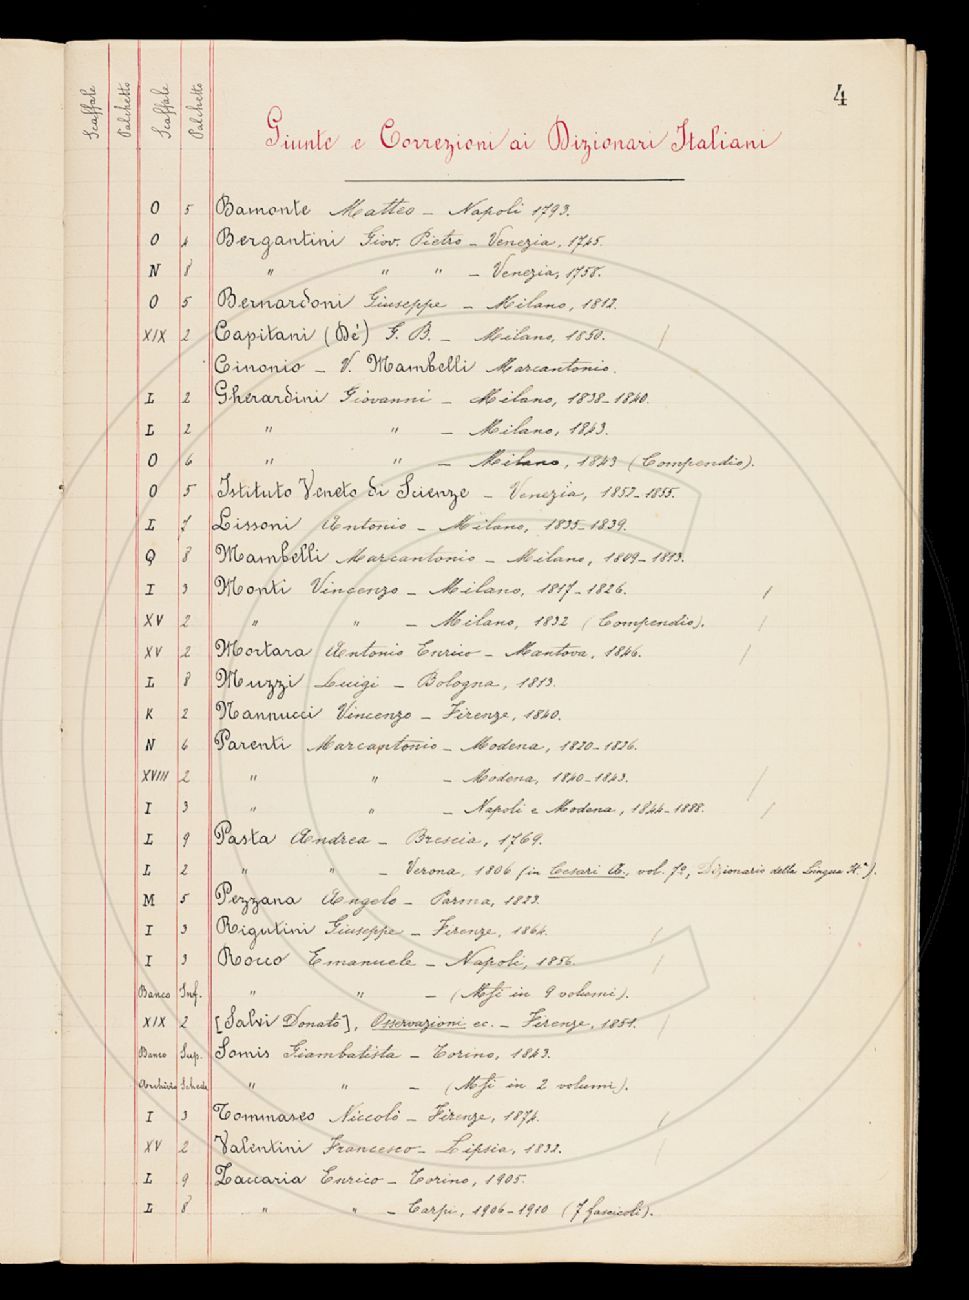 4
Scaffale Palchetto Scaffale Palchetto
Giunte e Correzioni ai Dizionari Italiani
O 5 Bamonte Matteo – Napoli 1793.
O 4 Bergantini Giov. Pietro – Venezia, 1745.
N 8 " " " – Venezia, 1758.
O 5 Bernardoni Giuseppe – Milano, 1812.
XIX 2 Capitani (De') G. B. – Milano, 1850.
Cinonio – V. Mambelli Marcantonio.
L 2 Gherardini Giovanni – Milano, 1838-1840.
L 2 " " – Milano, 1843.
O 6 " " – Milano, 1843 (Compendio).
O 5 Istituto Veneto di Scienze – Venezia, 1852-1855.
L 7 Lissoni Antonio – Milano, 1835-1839.
Q 8 Mambelli Marcantonio – Milano, 1809-1813.
I 3 Monti Vincenzo – Milano, 1817-1826.
XV 2 " " – Milano, 1832 (Compendio).
XV 2 Mortara Antonio Enrico – Mantova, 1846.
L 8 Muzzi Luigi – Bologna, 1813.
K 2 Nannucci Vincenzo – Firenze, 1840.
N 6 Parenti Marcantonio – Modena, 1820-1826.
XVIII 2 " " – Modena, 1840-1843.
I 3 " " – Napoli e Modena, 1844-1888.
L 9 Pasta Andrea – Brescia, 1769.
L 2 " " – Verona, 1806 (in Cesari A., vol. 7º, Dizionario della Lingua It.ª).
M 5 Pezzana Angelo – Parma, 1823.
I 3 Rigutini Giuseppe – Firenze, 1864.
I 3 Rocco Emanuele – Napoli, 1856.
Banco Inf. " " – (Mss in 9 volumi).
XIX 2 [Salvi Donato], Osservazioni ec. – Firenze, 1851.
Banco Sup. Somis Giambatista – Torino, 1843.
Archivio Schede " " – (Mss in 2 volumi).
I 3 Tommaseo Niccolò – Firenze, 1874.
XV 2 Valentini Francesco – Lipsia, 1832.
L 9 Zaccaria Enrico – Torino, 1905.
L 8 " " – Carpi, 1906-1910 (7 fascicoli).